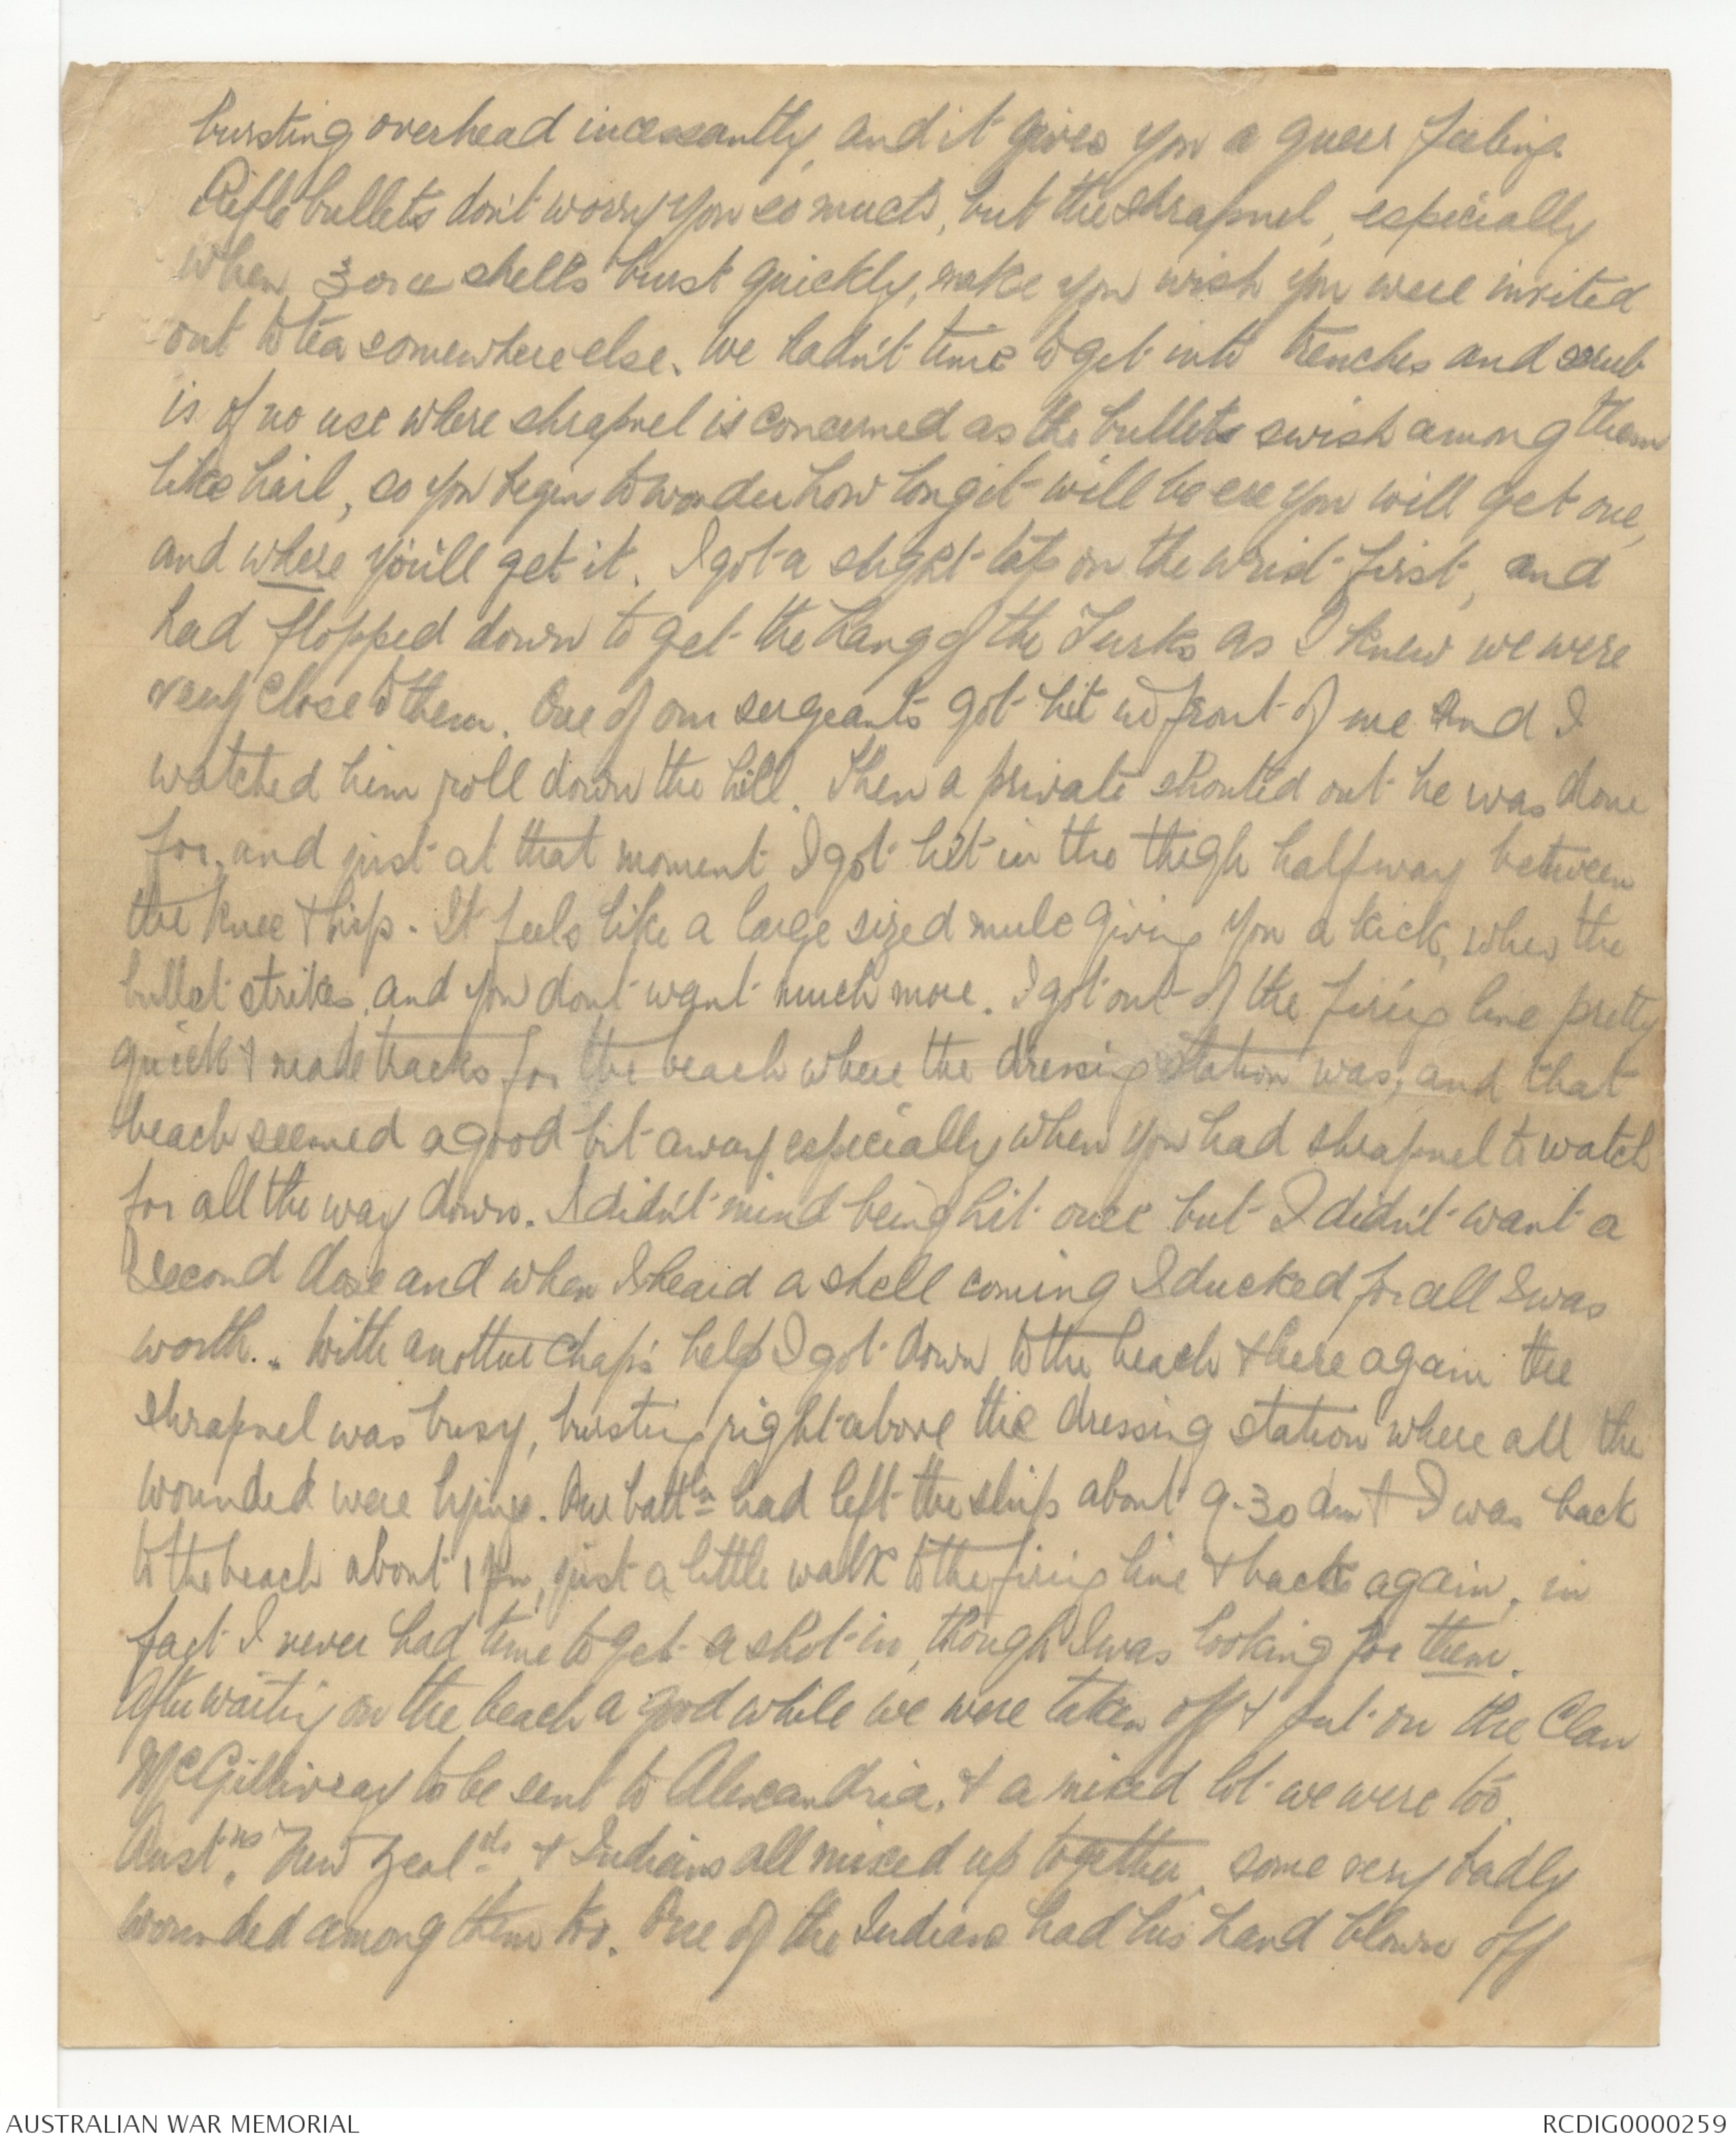 bursting overhead incessantly, and it gives you a queer feeling.
Rifle bullets don't worry you so much, but the shrapnel, especially
when 3 or 4 shells burst quickly, make you wish you were invited
out to tea somewhere else. We hadn't time to get into trenches and scrub
is of no use where shrapnel is concerned as the bullets swish among them
like hail, so you begin to wonder how long it will be ere you will get one,
and where you'll get it. I got a slight tap on the wrist first, and
had flopped down to get the hang of the Turks as I knew we were
very close to them. One of our sergeants got hit in front of me and I
watched him roll down the hill. Then a private shouted out he was done
for, and just at that moment I got hit in the thigh halfway between
the knee & hip. It feels like a large sized mule giving you a kick, when the
bullet strikes, and you don't want much more. I got out of the firing line pretty
quick & made tracks for the beach where the dressing station was, and that
beach seemed a good bit away especially when you had shrapnel to watch
for all the way down. I didn't mind being hit once but I didn't want a
second dose and when I heard a shell coming I ducked for all I was
worth. With another chap's help I got down to the beach & here again the
shrapnel was busy, bursting right above the dressing station where all the
wounded were lying. Our battln had left the ship about 9.30 am & I was back
to the beach about 1 pm, just a little walk to the firing line & back again, in
fact I never had time to get a shot in, though I was looking for them.
After waiting on the beach a good while we were taken off & put on the Clan
McGillivray to be sent to Alexandria, & a mixed lot we were too.
Austns, New Zealds & Indians all mixed up together, some very badly
wounded among them too. One of the Indians had his hand blown off
AUSTRALIAN WAR MEMORIAL
RCDIG0000259